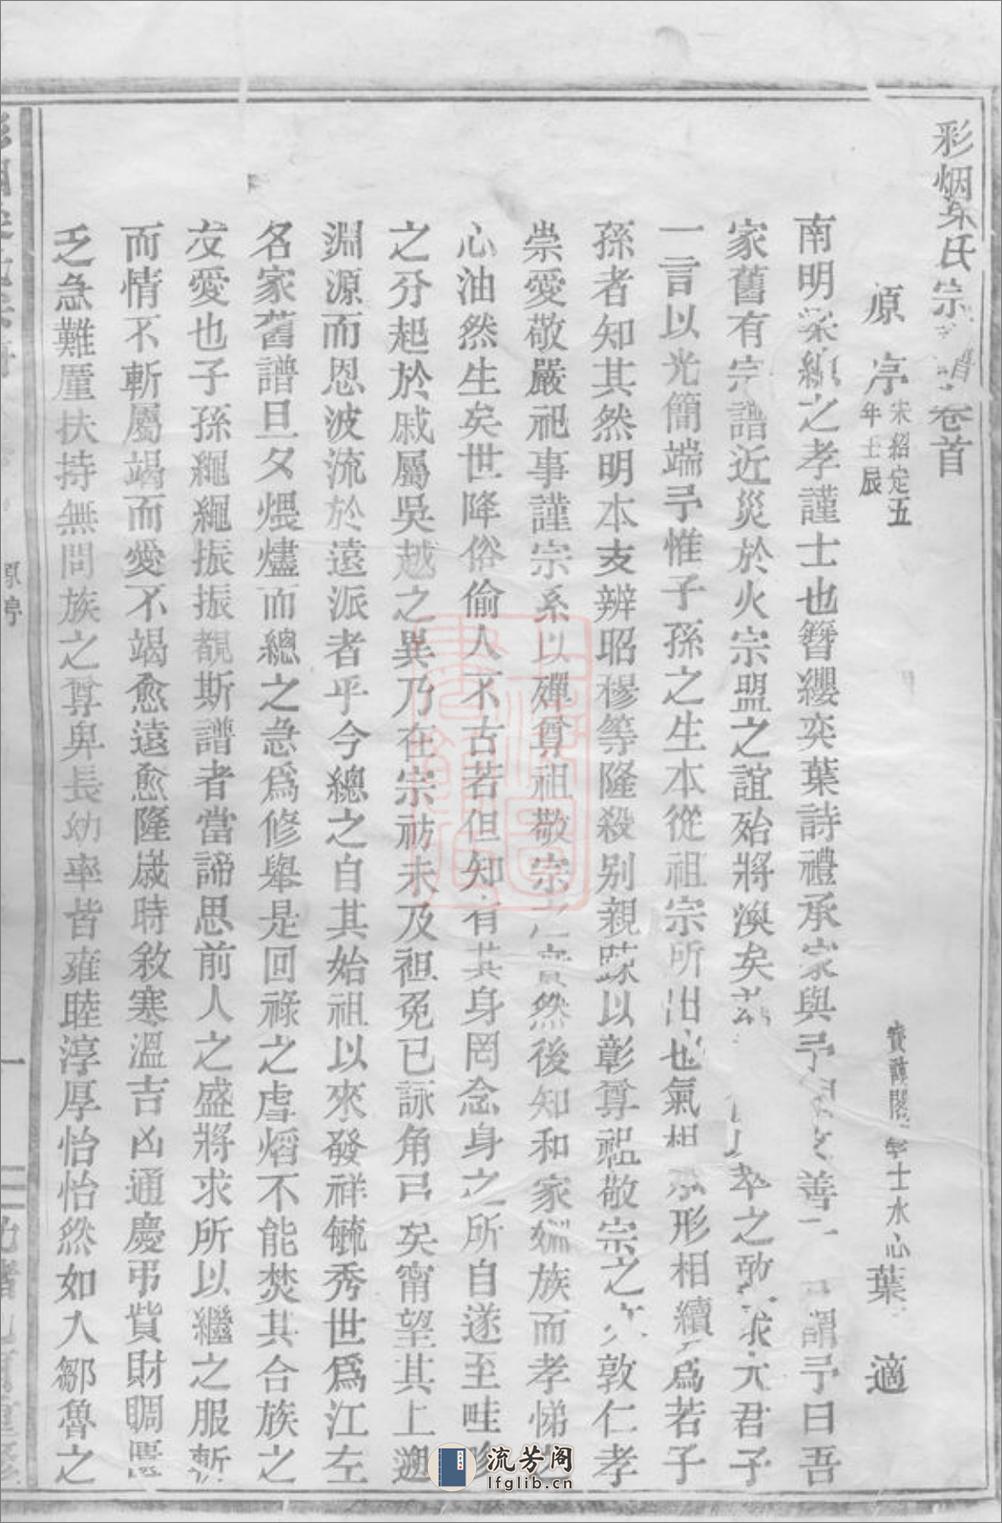 彩烟梁氏宗譜卷首
原序
宋紹定五
年壬辰
寶謨閣學士水心葉適
南明梁總之孝謹士也簪纓奕葉詩禮承家與予善謂予曰吾
家舊有宗譜近災於火宗盟之誼殆將渙矣萃之敢求元君子
一言以光簡端予惟子孫之生本從祖宗所出也氣相形相續為若子
孫者知其然明本支辨昭穆等隆殺別親疎以彰尊祖敬宗之敦仁孝
崇愛敬嚴祀事謹宗系以殫尊祖敬宗之實然後知和家姻族而孝悌之
心油然生矣世降俗偷人不古若但知有其身罔念身之所自遂至畦畛
之分起於戚屬吳越之異乃在宗祊未及袒免已詠角弓矣甯望其上遡
淵源而恩波流於遠派者乎今總之自其始祖以來發祥毓秀世為江左
名家舊譜旦夕煨燼而總之急為修舉是回祿之虐熖不能焚其合族之
友愛也子孫繩繩振振覩斯譜者當諦思前人之盛將求所以繼之服暫
而情不斬屬竭而愛不竭愈遠愈隆歲時敘寒溫吉凶通慶弔貲財賙匱
乏急難厪扶持無問族之尊卑長幼率皆雍睦淳厚怡怡然如入鄒魯之
原序
一
流芳阁
lfglib.cn